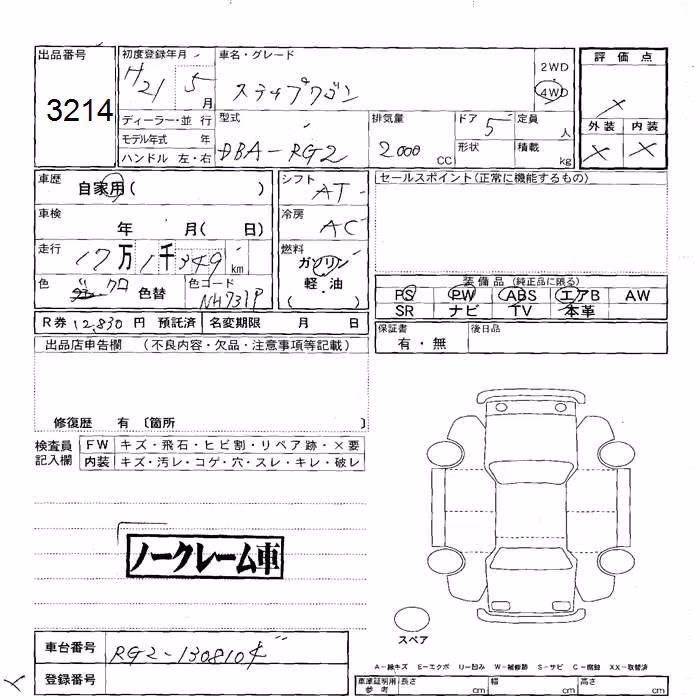 出品番号
3214
初度登録年月
H21 5月
車名・グレード
ステップワゴン
2WD
・
4WD
評価点
×
外装 内装
× ×
ディーラー・並行
モデル年式 年
ハンドル 左・右
型式
DBA-RG2
排気量
2000 CC
ドア
5
形状
定員
人
積載
kg
車歴
自家用( )
シフト
AT
セールスポイント(正常に機能するもの)
車検
年 月( 日)
冷房
AC
走行
17万1千349km
燃料
ガソリン
軽・油
( )
色
クロ 色替
色コード
NH731P
装備品(純正品に限る)
PS PW ABS エアB AW
SR ナビ TV 本革
R券 12,830 円 預託済 名変期限 月 日
保証書
有・無
後日品
出品店申告欄 (不良内容・欠品・注意事項等記載)
修復歴 有〔箇所 〕
検査員
記入欄
FW キズ・飛石・ヒビ割・リペア跡・×要
内装 キズ・汚レ・コゲ・穴・スレ・キレ・破レ
ノークレーム車
スペア
車台番号
RG2-1308104
登録番号
A-線キズ E-エクボ U-凹み W-補修跡 S-サビ C-腐蝕 XX-取替済
車庫証明用
参考
長さ cm 幅 cm 高さ cm